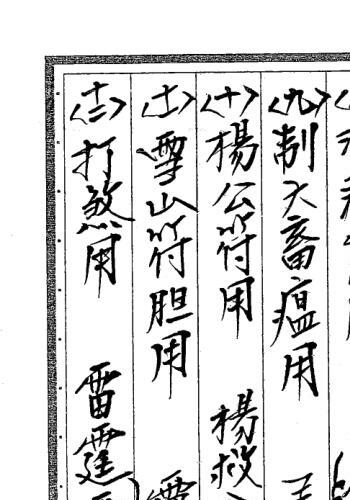 〈九〉制大畜瘟用
〈十〉楊公符用 楊救
〈十一〉雪山符胆用
〈十二〉打煞用 雷霆